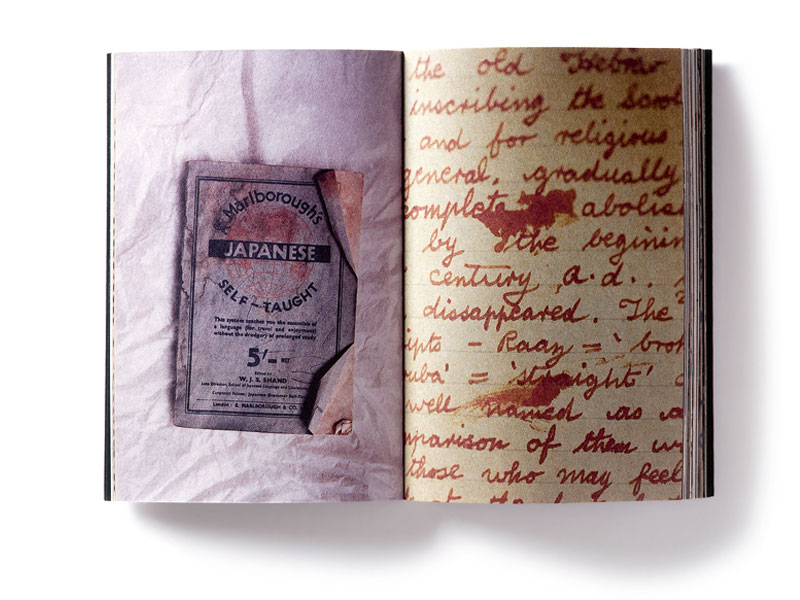 E. Marlborough's
JAPANESE
SELF-TAUGHT
This system teaches you the essentials of
a language (for travel and enjoyment)
without the drudgery of prolonged study
5/- NET
Edited by
W. J. S. SHAND
Late Director, School of Japanese Language and
London: E. MARLBOROUGH & CO.
the old Hebrew
inscribing the Scrol
and for religious
general, gradually
complete abolis
by the beginin
century a.d.,
disappeared. The
ipts - Raaz = 'brok
uba' = 'straight'
well named as a
mparison of them w
those who may feel